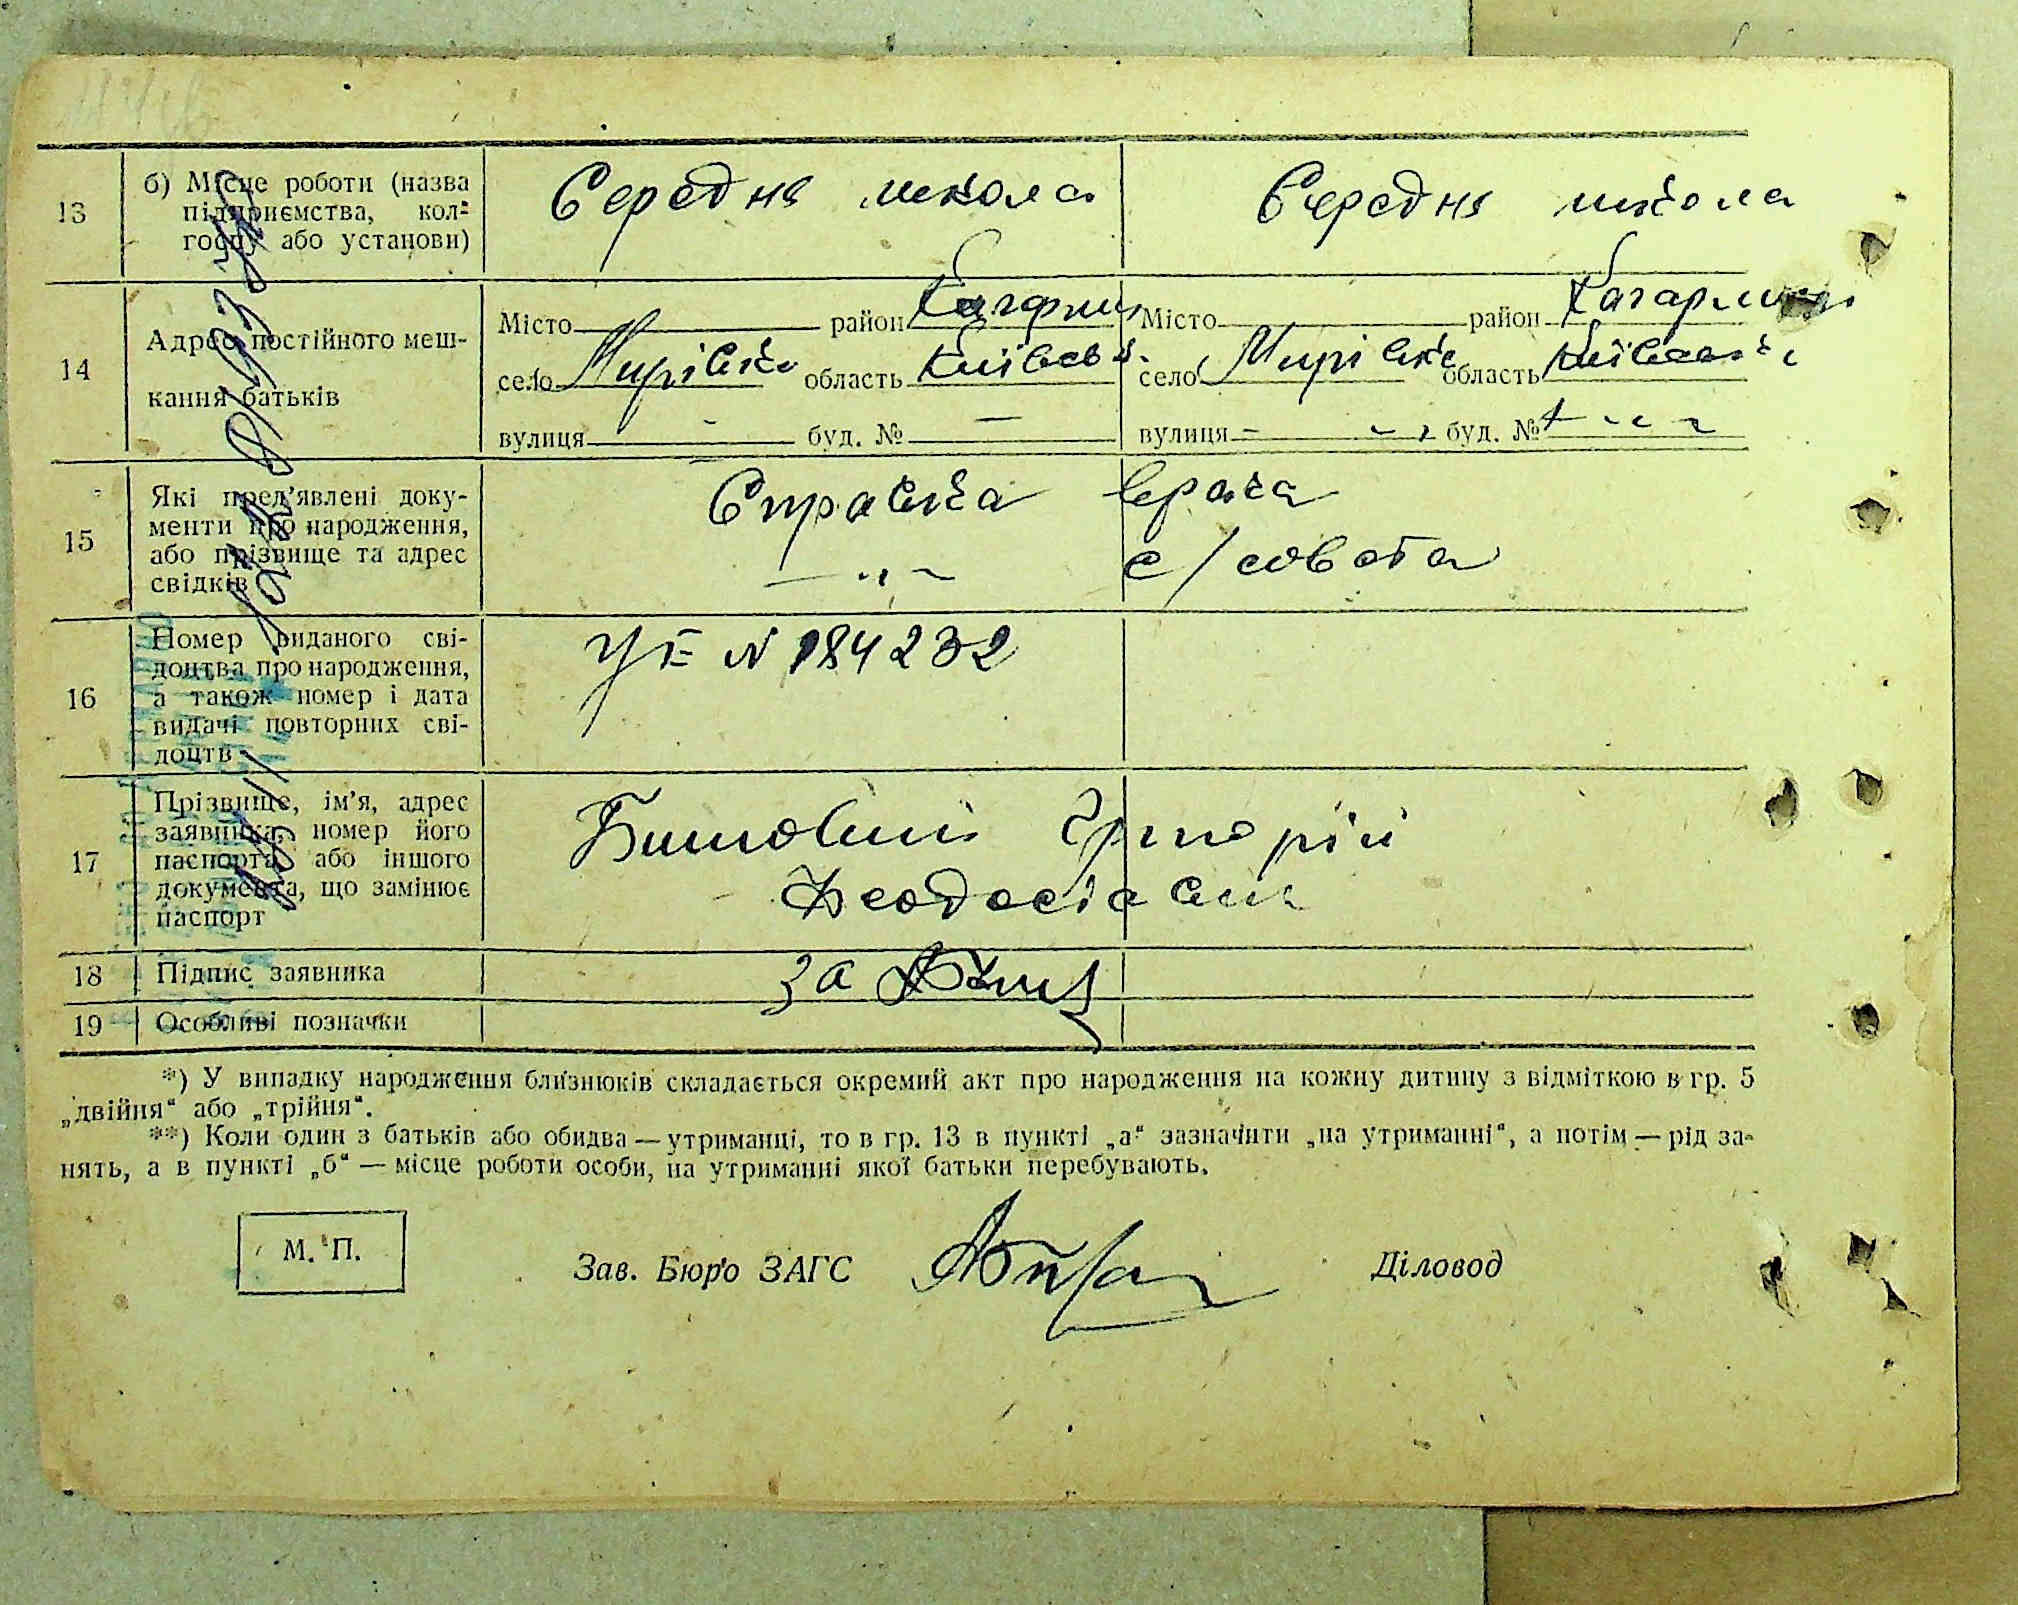 13
б) Місце роботи (назва
підприємства, кол-
госпу або установи)
Середня школа
Середня школа
14
Адрес постійного меш-
кання батьків
Місто район Кагарлиц
село Мирівка область Київськ.
вулиця - буд. № —
Місто район Кагарлицьк
село Мирівка область Київська
вулиця - - „ - буд. №
15
Які пред’явлені доку-
менти про народження,
або прізвище та адрес
свідків
Справка врача
— „ — с/совета
16
Номер виданого сві-
доцтва про народження,
а також номер і дата
видачі повторних сві-
доцтв
УЕ N 184232
17
Прізвище, ім’я, адрес
заявника, номер його
паспорта або іншого
документа, що замінює
паспорт
Григорій
Феодосіевич
18
Підпис заявника
за
19
Особливі позначки
*) У випадку народження близнюків складається окремий акт про народження на кожну дитину з відміткою в гр. 5
„двійня“ або „трійня“.
**) Коли один з батьків або обидва — утриманці, то в гр. 13 в пункті „а“ зазначити „на утриманні“, а потім — рід за-
нять, а в пункті „б“ — місце роботи особи, на утриманні якої батьки перебувають.
М. П.
Зав. Бюро ЗАГС
Діловод